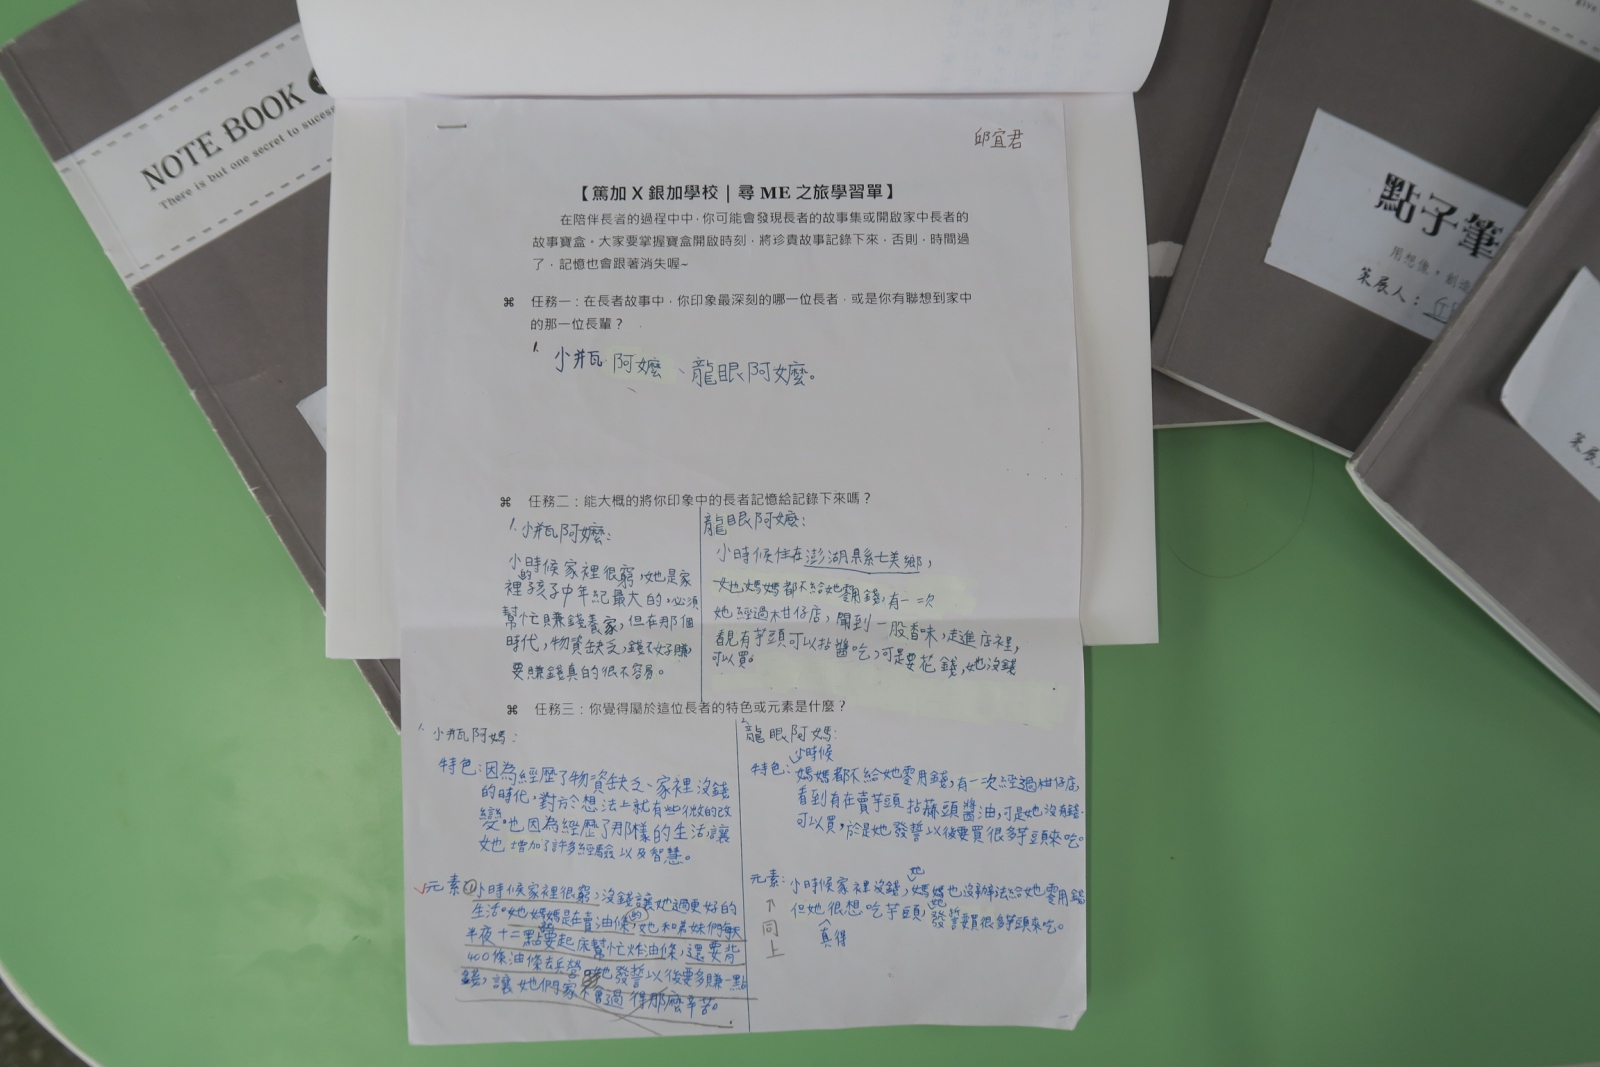 NOTE BOOK
There is but one secret to sucess
點子筆
用想像，創造
策展人：丘
策展
邱宜君
【篤加 X 銀加學校 | 尋 ME 之旅學習單】
在陪伴長者的過程中中，你可能會發現長者的故事集或開啟家中長者的
故事寶盒。大家要掌握寶盒開啟時刻，將珍貴故事記錄下來，否則，時間過
了，記憶也會跟著消失喔~
⌘ 任務一：在長者故事中，你印象最深刻的哪一位長者，或是你有聯想到家中
的那一位長輩？
1. 小瓶阿嬤、龍眼阿嬤。
⌘ 任務二：能大概的將你印象中的長者記憶給記錄下來嗎？
1. 小瓶阿嬤：
小時候家裡很窮，她是家
裡的孩子中年紀最大的，必須
幫忙賺錢養家，但在那個
時代，物資缺乏，錢不好賺，
要賺錢真的很不容易。
龍眼阿嬤：
小時候住在澎湖縣七美鄉，
她媽媽都不給她零用錢，有一次
她經過柑仔店，聞到一股香味，走進店裡，
看見有芋頭可以拈醬吃，可是要花錢，她沒錢
可以買。
⌘ 任務三：你覺得屬於這位長者的特色或元素是什麼？
1. 小瓶阿媽：
特色：因為經歷了物資缺乏、家裡沒錢
的時代，對於想法上就有些微的改
變。也因為經歷了那樣的生活讓
她增加了許多經驗以及智慧。
元素①小時候家裡很窮，沒錢讓她過更好的
生活。她媽媽是在賣油條的，她和弟妹們每天
半夜十二點都要起床幫忙炸油條，還要背
400條油條去兵營，她發誓以後要多賺一點
錢，讓她們家不會過得那麼辛苦。
龍眼阿媽：
小時候
特色：媽媽都不給她零用錢，有一次經過柑仔店，
看到有在賣芋頭拈蒜頭醬油，可是她沒有錢
可以買，於是她發誓以後要買很多芋頭來吃。
元素：小時候家裡沒錢，她媽媽也沒辦法給她零用錢
但她很想吃芋頭，她發誓要買很多芋頭來吃。
真得
↑
同
上